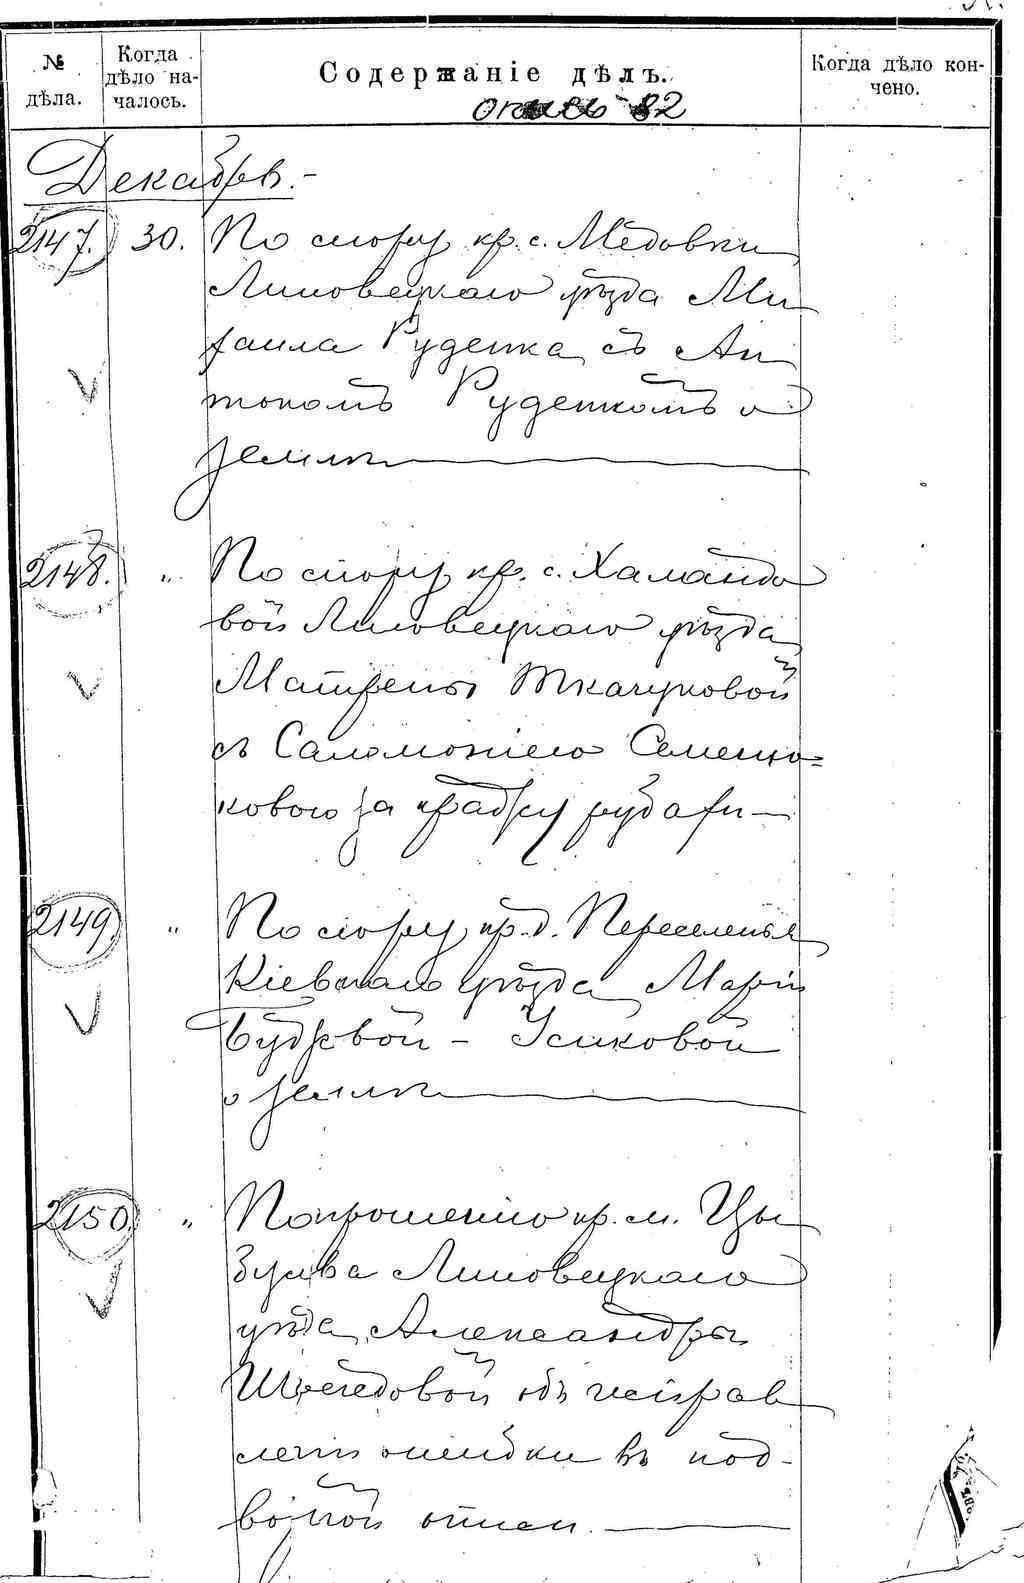 № дѣла.
Когда дѣло на-
чалось.
Содержаніе дѣлъ.
Когда дѣло кон-
чено.
опись 82
Декабрь.-
2147. 30. По спору кр. с. Медовки
Липовецкаго уѣзда Ми
хаила Руденка съ Ан
тономъ Руденкомъ о
землѣ
2148. " По спору кр. с. Хамандо
вой Липовецкаго уѣзда
Матрены Ткачуковой
съ Саломоніею Семеню=
ковою за крадѣу
2149. " По спору кр. д. Переселенья
Кіевскаго уѣзда Маріи
Бубховой - Усиковой
о землѣ
2150. " По прошенію кр. м. Цы
булева Липовецкаго
уѣзда, Александры
Шведовой объ исправ
леніи ошибки въ под-
ворной описи.